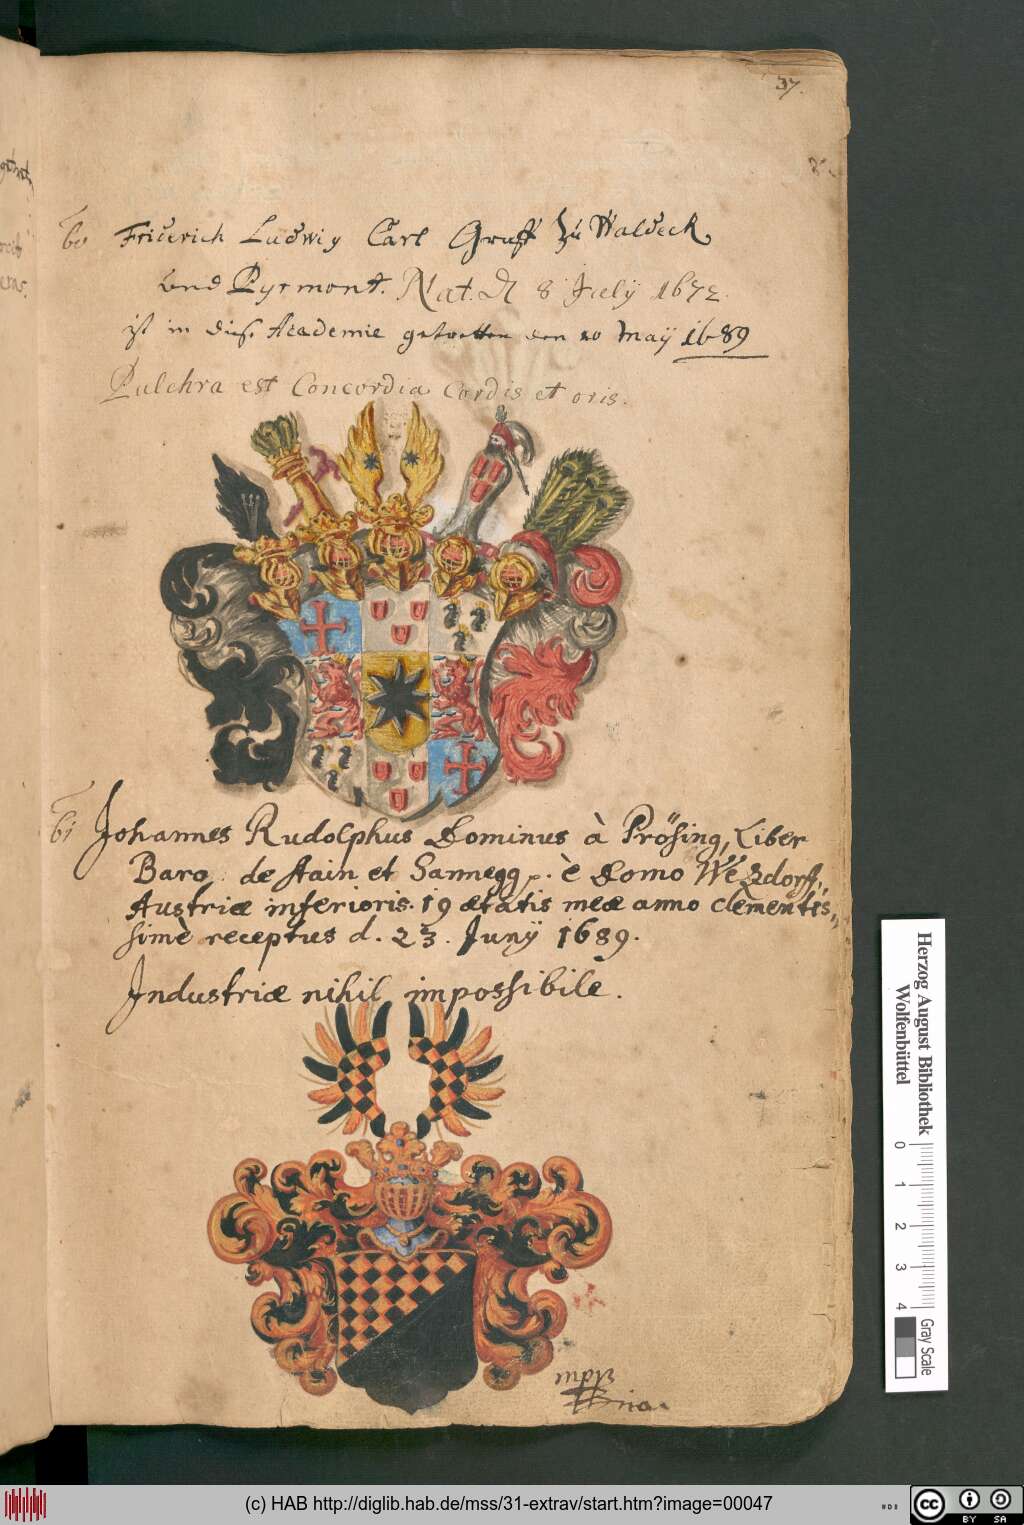 37.
60 Friderich Ludwig Carl Graff zu Waldeck
und Pyrmont. Nat. d 8 July 1672.
ist in diese Academie getretten den 20 Maÿ 1689
Pulchra est Concordia Cordis et oris.
61 Johannes Rudolphus Dominus à Prösing, Liber
Baro de stain et Sannegg è Domo Wezdorff,
Austriæ inferioris. 19 ætatis meæ anno clementis,,
simè receptus d. 23. Junÿ 1689.
Industriæ nihil impossibile.
mppr
Herzog August Bibliothek
Wolfenbüttel
0 1 2 3 4
Gray Scale
(c) HAB http://diglib.hab.de/mss/31-extrav/start.htm?image=00047
cc BY SA